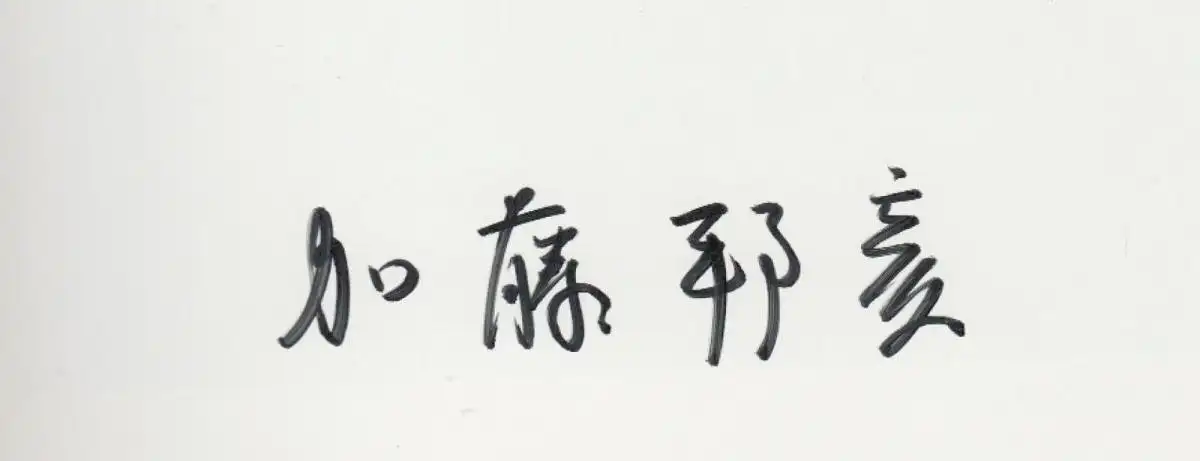 加藤邦彦